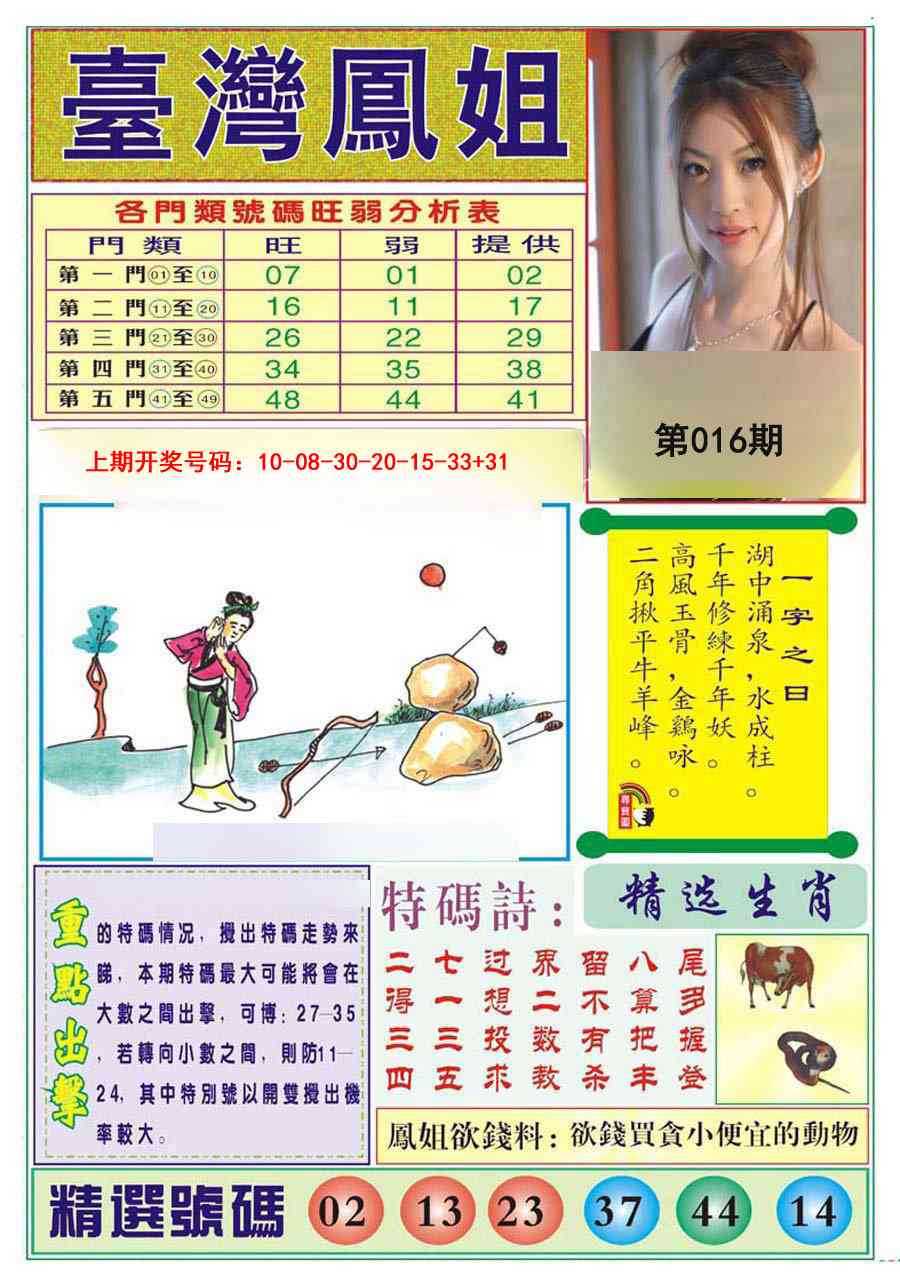 臺灣鳳姐
各門類號碼旺弱分析表
門類 旺 弱 提供
第一門01至10 07 01 02
第二門11至20 16 11 17
第三門21至30 26 22 29
第四門31至40 34 35 38
第五門41至49 48 44 41
第016期
上期开奖号码：10-08-30-20-15-33+31
一字之曰
湖中涌泉，水成柱。
千年修練千年妖。
高風玉骨，金鷄咏。
二角揪平牛羊峰。
尋寶圖
重點出擊
的特碼情況，攪出特碼走勢來
睇，本期特碼最大可能將會在
大數之間出擊，可博：27—35
，若轉向小數之間，則防11—
24，其中特別號以開雙攪出機
率較大。
特碼詩：
二七过界留八尾
得一想二不算多
三三投数有把握
四五求教杀丰登
精选生肖
鳳姐欲錢料：欲錢買貪小便宜的動物
精選號碼 02 13 23 37 44 14